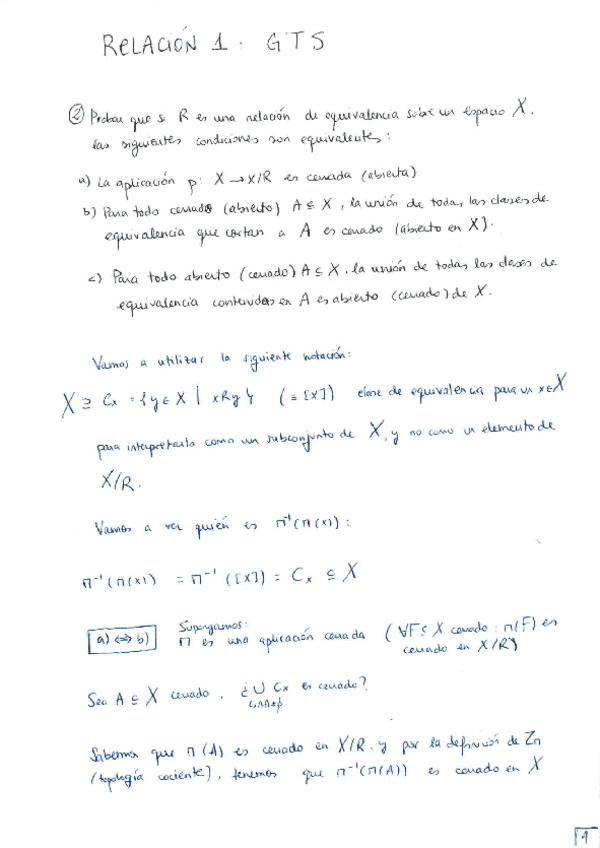 RELACIÓN 1: GTS
② Probar que si R es una relación de equivalencia sobre un espacio X,
las siguientes condiciones son equivalentes:
a) La aplicación p: X → X/R es cerrada (abierta)
b) Para todo cerrado (abierto) A ⊆ X, la unión de todas las clases de
equivalencia que cortan a A es cerrado (abierto en X).
c) Para todo abierto (cerrado) A ⊆ X, la unión de todas las clases de
equivalencia contenidas en A es abierto (cerrado) de X.
Vamos a utilizar la siguiente notación:
X ⊇ Cx = {y ∈ X | xRy} (≡ [x]) clase de equivalencia para un x∈X
para interpretarlo como un subconjunto de X, y no como un elemento de
X/R.
Vamos a ver quién es Π⁻¹(Π(x)):
Π⁻¹(Π(x)) = Π⁻¹([x]) = Cx ⊆ X
a) ⇔ b) Supongamos:
Π es una aplicación cerrada (∀F ⊆ X cerrado: Π(F) es
cerrado en X/R)
Sea A ⊆ X cerrado. ¿∪ Cx es cerrado?
Cx∩A≠∅
Sabemos que Π(A) es cerrado en X/R y por la definición de
(topología cociente), tenemos que Π⁻¹(Π(A)) es cerrado en X
1